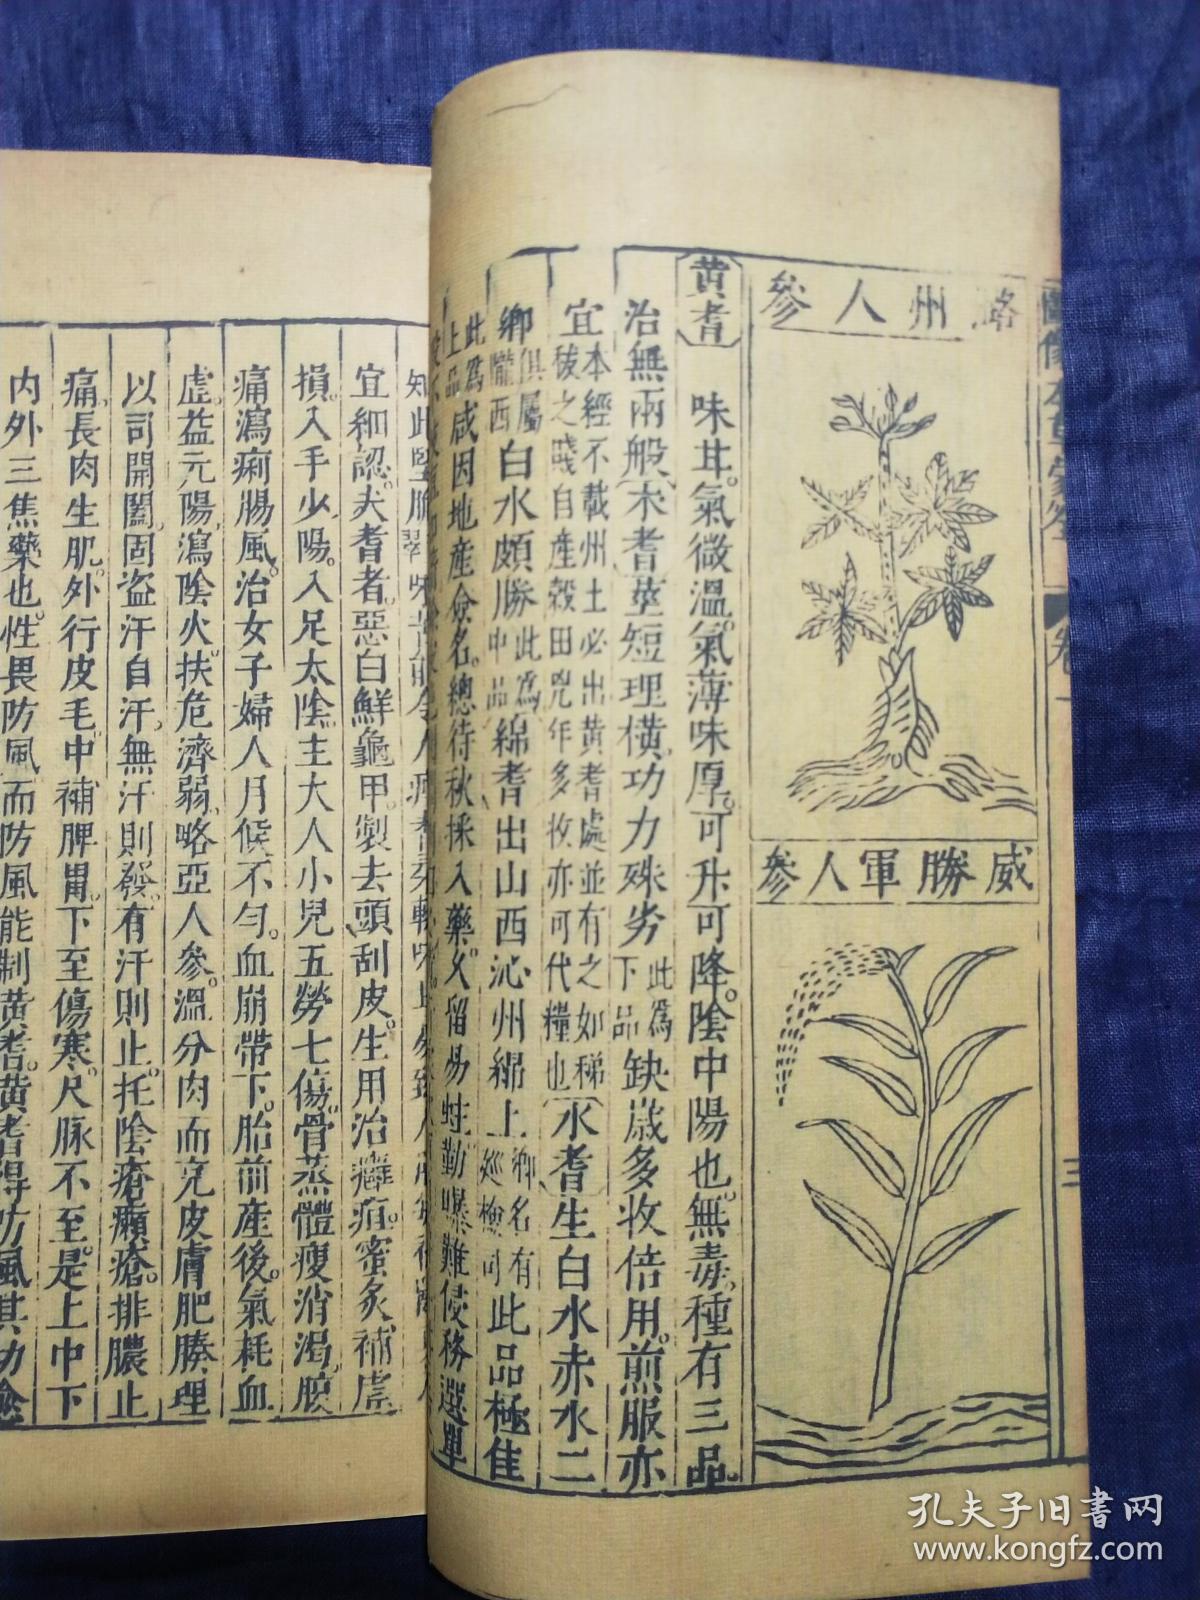 潞州人參
威勝軍人參
黃耆
味甘氣微溫氣薄味厚可升可降陰中陽也無毒種有三品
治無兩般木耆莖短理橫功力殊劣此爲下品缺歲多收倍用煎服亦
宜本經不載州土必出黃耆處並有之如稊秡之賤自產穀田兇年多收亦可代糧也水耆生白水赤水二
鄉俱屬隴西白水頗勝此爲中品綿耆出山西沁州綿上鄉名有巡檢司此品極佳
此爲上品咸因地產僉名總待秋採入藥久留易蛀勤曝難侵務選單
宜細認夫耆者惡白鮮龜甲製去頭刮皮生用治癰疽蜜炙補虛
損入手少陽入足太陰主大人小兒五勞七傷骨蒸體瘦消渴腹
痛瀉痢腸風治女子婦人月候不勻血崩帶下胎前產後氣耗血
虛益元陽瀉陰火扶危濟弱略亞人參溫分肉而充皮膚肥腠理
以司開闔固盜汗自汗無汗則發有汗則止托陰瘡癩瘡排膿止
痛長肉生肌外行皮毛中補脾胃下至傷寒尺脉不至是上中下
內外三焦藥也性畏防風而防風能制黃耆黃耆得防風其功愈
卷一
三
孔夫子旧書网
www.kongfz.com